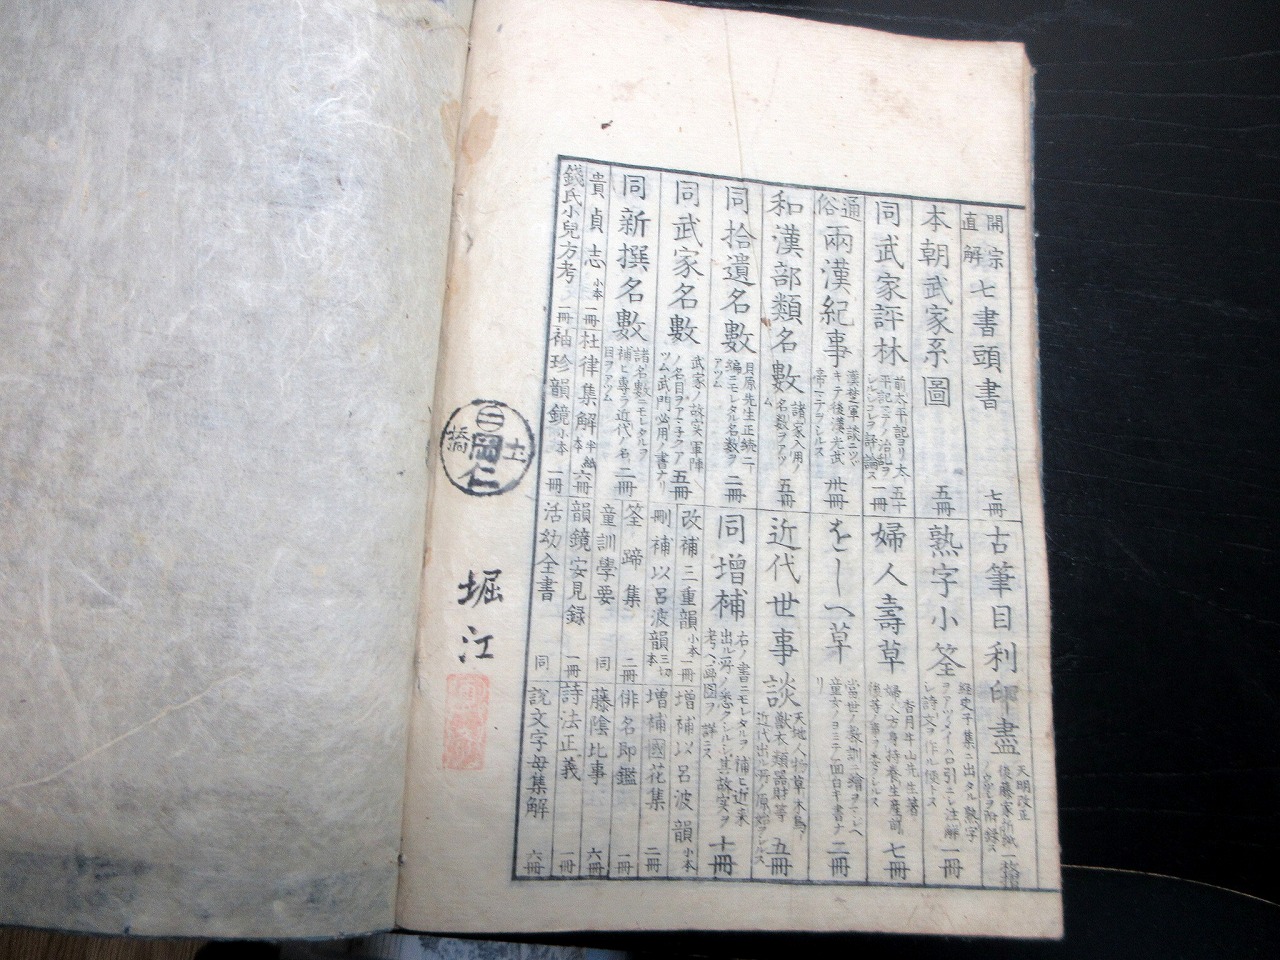 開宗直解 七書頭書 七冊
本朝武家系圖 五冊
同武家評林 前太平記ヨリ太平記ニテノ治乱ヲシルシコレヲ評論ス 五十一冊
通俗 兩漢紀事 漢楚軍談ニツヾキテ後漢光武帝ニテヲシルス 卅冊
和漢部類名數 諸家入用ノ名数ヲアツム 五冊
同拾遺名數 貝原先生正続二編ニモレタル名数ヲアツム 二冊
同武家名數 武家ノ故実軍陣ノ名目ヲアマ子クアツム武門必用ノ書ナリ 五冊
同新撰名數 諸名數ニモレタルヲ補ヒ専ラ近代ノ名目ヲアツム 二冊
貴貞志 小本 一冊
杜律集解 半紙本 六冊
錢氏小兒方考 一冊
袖珍韻鏡 小本 一冊
古筆目利印盡 天明改正 後藤家折紙ノウツシヲ附録ス 一枚摺
熟字小筌 経史子集ニ出タル熟字ヲアツメイロハ引ニシ注解シ詩文ヲ作ル便トス 一冊
婦人壽草 香月牛山先生著 七冊
をしへ草 當世ノ教訓ニ繪ヲマシヘ童女ノヨミテ面白キ書ナリ 二冊
近代世事談 天地人物草木鳥獣衣類器財等近代出ル所ノ原始ヲシルス 五冊
同増補 右ノ書ニモレタルヲ補ヒ近来出ル所ノ悉クシルシ其故実ヲ考ヘ画図ヲ詳ニス 十冊
改補三重韻 小本 一冊
増補以呂波韻 小本
刪補以呂波韻 三切本
増補國花集 二冊
筌蹄集 二冊
俳名即鑑 一冊
童訓學要 同
藤陰比事 六冊
韻鏡安見録 一冊
詩法正義 一冊
活幼全書 同
説文字母集解 六冊
土橋
岡仁
堀江